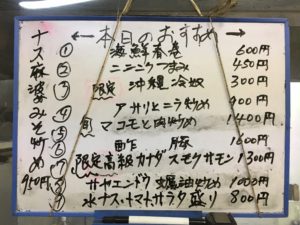 ←本日のおすすめ→
① 海鮮春巻 600円
② ニンニクつまみ 450円
③ 限定 沖縄冷奴 300円
④ アサリとニラ炒め 900円
⑤ マコモと肉炒め 1400円
⑥ 酢豚 1600円
⑦ 限定高級カナダスモークサモン 1300円
⑧ サヤエンドウ 油炒め 1000円
⑨ 水ナス・トマトサラダ盛り 800円
ナス麻婆みそ炒め 950円